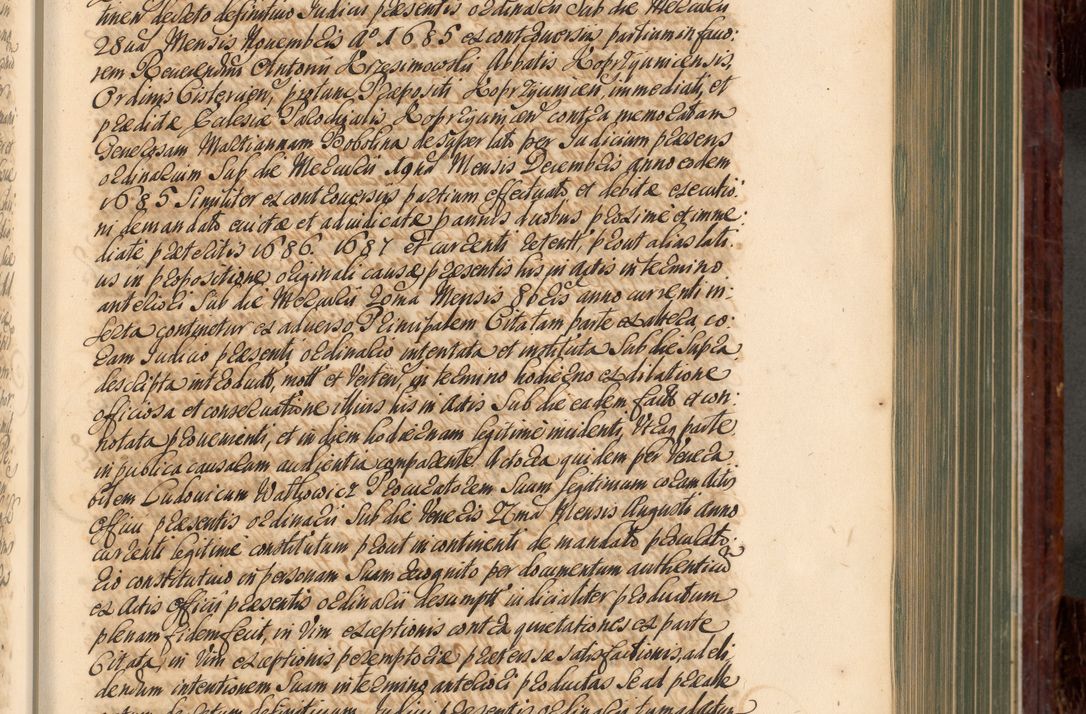 hinen decreto definitivo Judicii præsentis ordinarii Sub die Mercurii
28va Mensis Novembris Aº 1685 ex controversiis partium in favo:
rem Reverendissimi Antonii Krzesimowski Abbatis Koprzywnicensis,
Ordinis Cistercien, protunc Præpositi Koprzywnicen, immediati, et
prædictæ Ecclesiæ Parochialis Koprzywnicen contra memoratam
Generosam Mariannam Bobolina desuper lato per Judicium præsens
ordinarium Sub die Mercurii 19na Mensis Decembris anno eodem
1685 Similiter ex controversiis partium effectuato et debitæ executio:
ni demandato evictæ et adiudicatæ p annis duobus proxime et imme:
diate præteritis 1686. 1687 et currenti retent, prout alias lati:
us in propositione originali causæ præsentis his in Actis in termino
anteriori Sub die Mercurii 20ma Mensis 8bris anno currenti in:
serta continetur ex adverso Principalem Citatam parte ex altera, co:
ram Judicio præsenti ordinario intentata et instituta Sub die Supra
descripta introducto, mott et verten, in termino hodierno ex dilatione
officiosa et conservatione illius his in Actis Sub die eadem facta et con:
notata provenienti, et in diem hodiernam legitime incidenti, Utraq parte
in publica causarum audientia comparente. Actorea quidem per Venera
bilem Ludovicum Wathowicz Procuratorem Suum legitimum coram Actis
Officii præsentis ordinarii Sub die Veneris 27ma Mensis Augusti anno
currenti legitime constitutum prout in continenti de mandato procurato:
rio constitutivo in personam Suam recognito per documentum authenticum
ex Actis Officii præsentis ordinarii desumptt iudicialiter productum
plenam fidem fecit, in Vim exceptionis contra quietationes ex parte
Citata, in Vim exceptionis peremptoriæ prætensæ Satisfactionis, ad eli:
dendum intentionem Suam in termino anteriori productas Se ad præalle